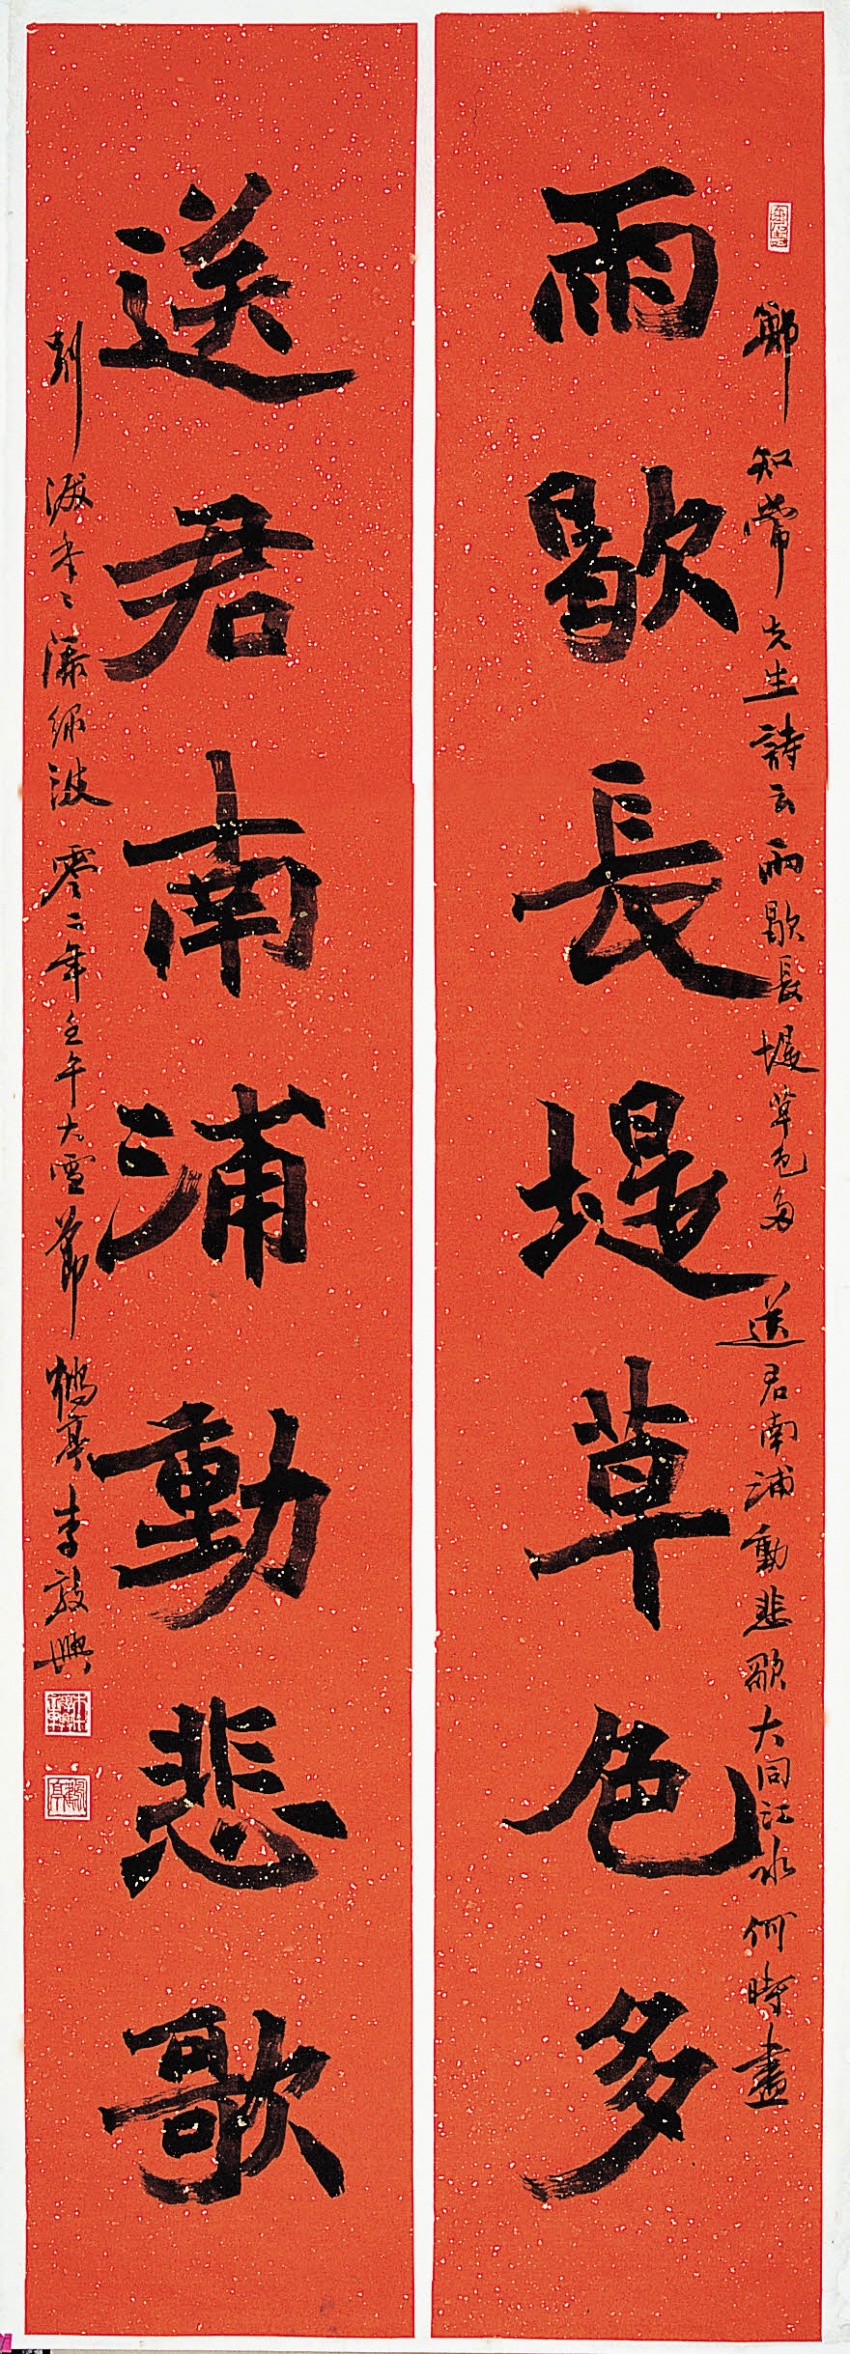 雨歇長堤草色多
送君南浦動悲歌
鄭知常先生詩云雨歇長堤草色多送君南浦動悲歌大同江水何時盡
別淚年々添綠波零二年壬午大雪節鶴亭李敦興